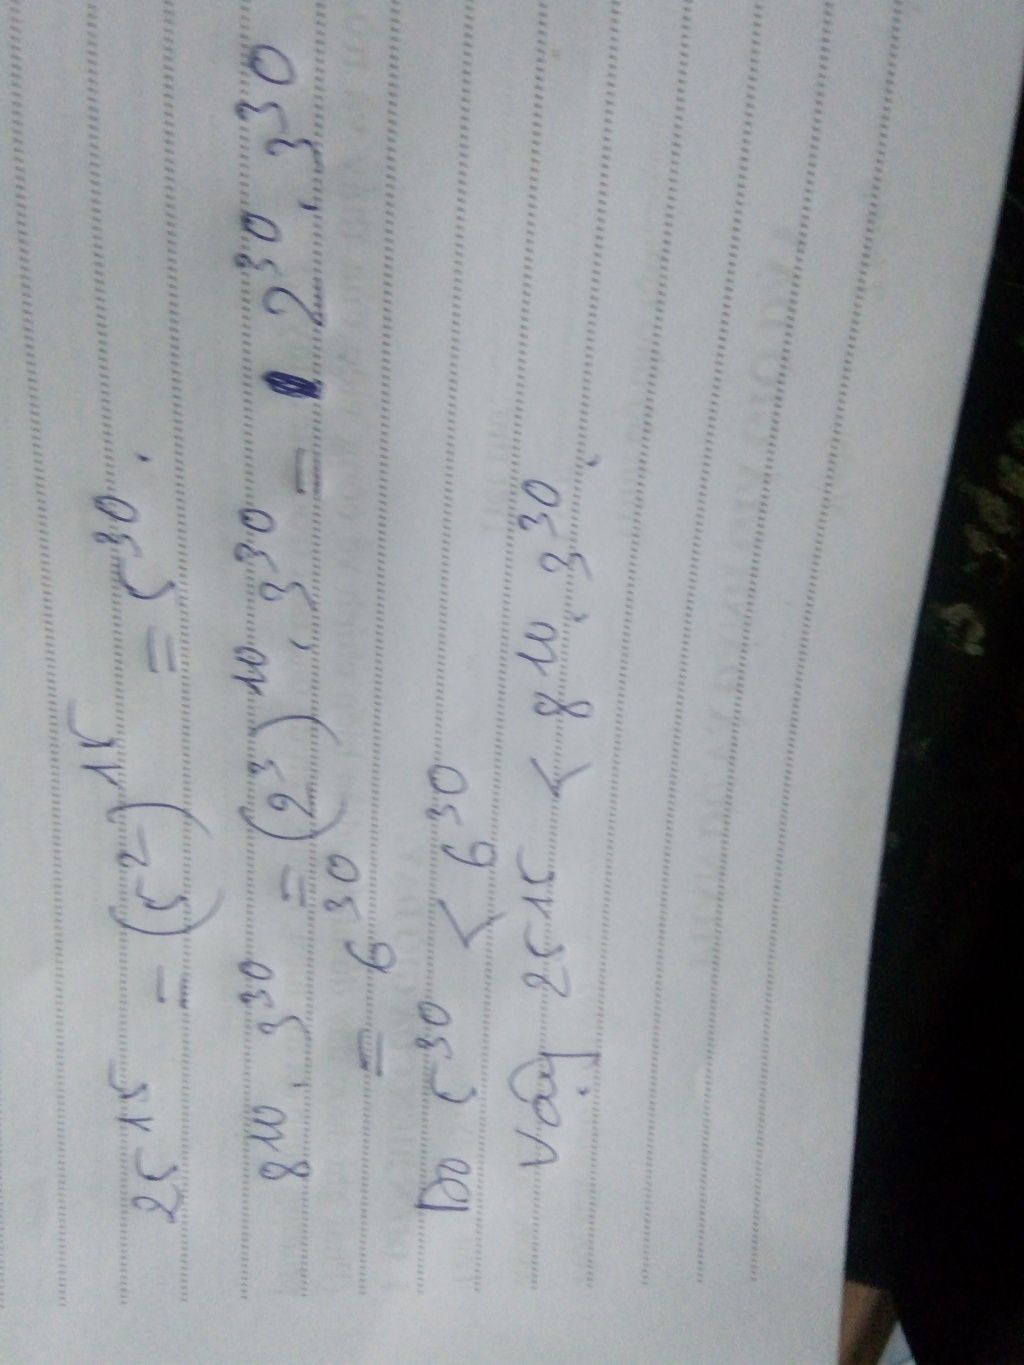 25¹⁵ = (5²)¹⁵ = 5³⁰.
8¹⁰ . 3³⁰ = (2³)¹⁰ . 3³⁰ = 2³⁰ . 3³⁰
= 6³⁰
Do 5³⁰ < 6³⁰
Vậy 25¹⁵ < 8¹⁰ . 3³⁰.